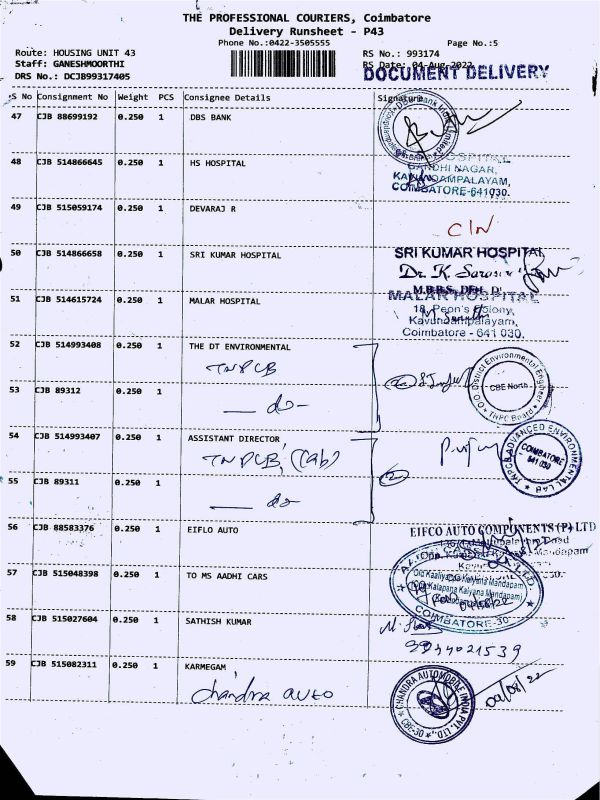 THE PROFESSIONAL COURIERS, Coimbatore
Delivery Runsheet - P43
Phone No.:0422-3505555
Page No.:5
Route: HOUSING UNIT 43
RS No.: 993174
Staff: GANESHMOORTHI
RS Date: 04-Aug-2022
DRS No.: DCJB99317405
DOCUMENT DELIVERY
S No Consignment No Weight PCS Consignee Details Signature
47 CJB 88699192 0.250 1 DBS BANK
48 CJB 514866645 0.250 1 HS HOSPITAL
HOSPITAL
GANDHI NAGAR,
KAVUNDAMPALAYAM,
COIMBATORE-641030.
49 CJB 515059174 0.250 1 DEVARAJ R
C/N
50 CJB 514866658 0.250 1 SRI KUMAR HOSPITAL
SRI KUMAR HOSPITAL
Dr. K.
51 CJB 514615724 0.250 1 MALAR HOSPITAL
MALAR HOSPITAL
18, Peon's Colony,
Kavundampalayam,
Coimbatore - 641 030.
52 CJB 514993408 0.250 1 THE DT ENVIRONMENTAL
TNPCB
District Environmental Engineer
CBE North
TNPC Board
53 CJB 89312 0.250 1
— do —
54 CJB 514993407 0.250 1 ASSISTANT DIRECTOR
TNPCB, (Lab)
TNPCB ADVANCED ENVIRONMENTAL LAB
COIMBATORE
641 030
55 CJB 89311 0.250 1
— do
56 CJB 88583376 0.250 1 EIFLO AUTO
EIFCO AUTO COMPONENTS (P) LTD
57 CJB 515048398 0.250 1 TO MS AADHI CARS
COIMBATORE-30
58 CJB 515027604 0.250 1 SATHISH KUMAR
9994021539
59 CJB 515082311 0.250 1 KARMEGAM
Chandra auto
CHANDRA AUTOMOBILE INDIA PVT. LTD.,
CBE-30